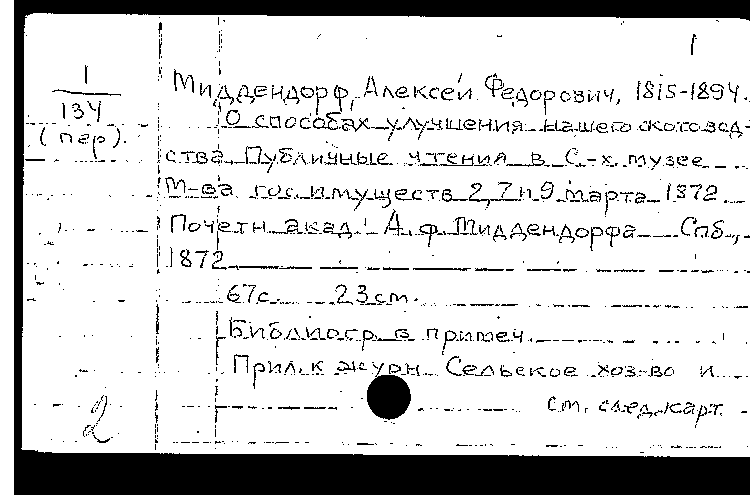 1
1
134
(пер).
Миддендорф, Алексей Федорович, 1815-1894.
О способах улучшения нашего скотовод-
ства. Публичные чтения в С-х. музее
М-ва гос. имуществ 2, 7 и 9 марта 1872
Почетн. акад. А. Ф. Миддендорфа Спб.,
1872
67с. 23см.
Библиогр. в примеч.
Прил. к журн. Сельское хоз-во и
см. след. карт.
2